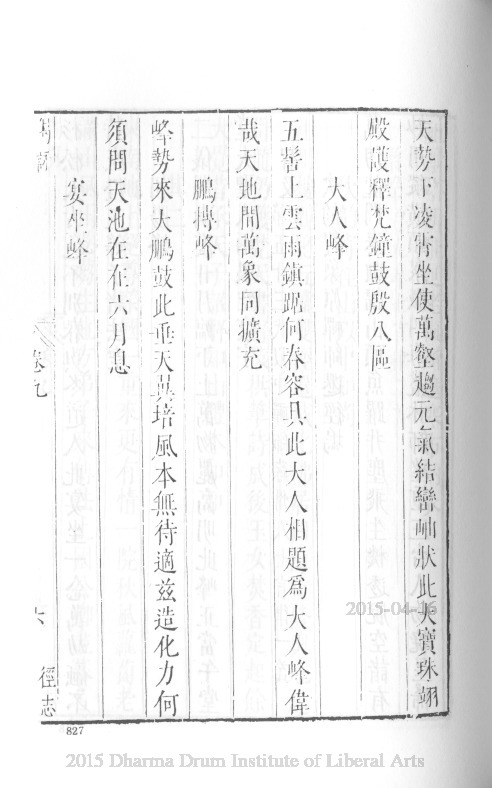 天勢下凌霄坐使萬壑趨元氣結巒岫狀此大寶珠翊
殿護釋梵鐘鼓殷八區
大人峰
五髻上雲雨鎮踞何舂容具此大人相題為大人峰偉
哉天地間萬象同擴充
鵬摶峰
峰勢來大鵬鼓此垂天異培風本無待適茲造化力何
須問天池在在六月息
宴坐峰
卷九
六
徑志
827
2015-04-16
2015 Dharma Drum Institute of Liberal Arts